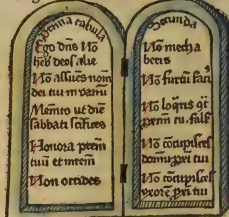 Prima tabula
Ego dns No
heb deos alie
No assues nom
dei tui in vanu
Memeto ut die
sabbati scifices
Honora prem
tuu et mrem
Non occides
Secunda
No mecha
beris
No furtu fac
No loqris
prem tu. fals
No cocupisces
domu pxi tui
No cocupisces
uxore pxi tui